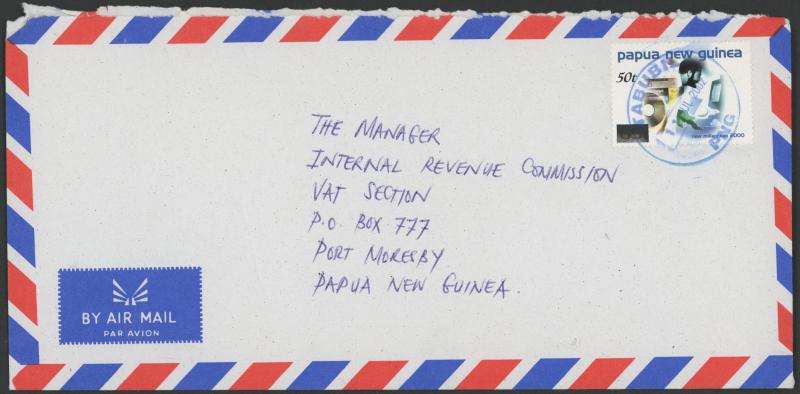 papua new guinea
50t
new millennium 2000
PNG
THE MANAGER
INTERNAL REVENUE COMMISSION
VAT SECTION
P.O. BOX 777
PORT MORESBY
PAPUA NEW GUINEA.
BY AIR MAIL
PAR AVION